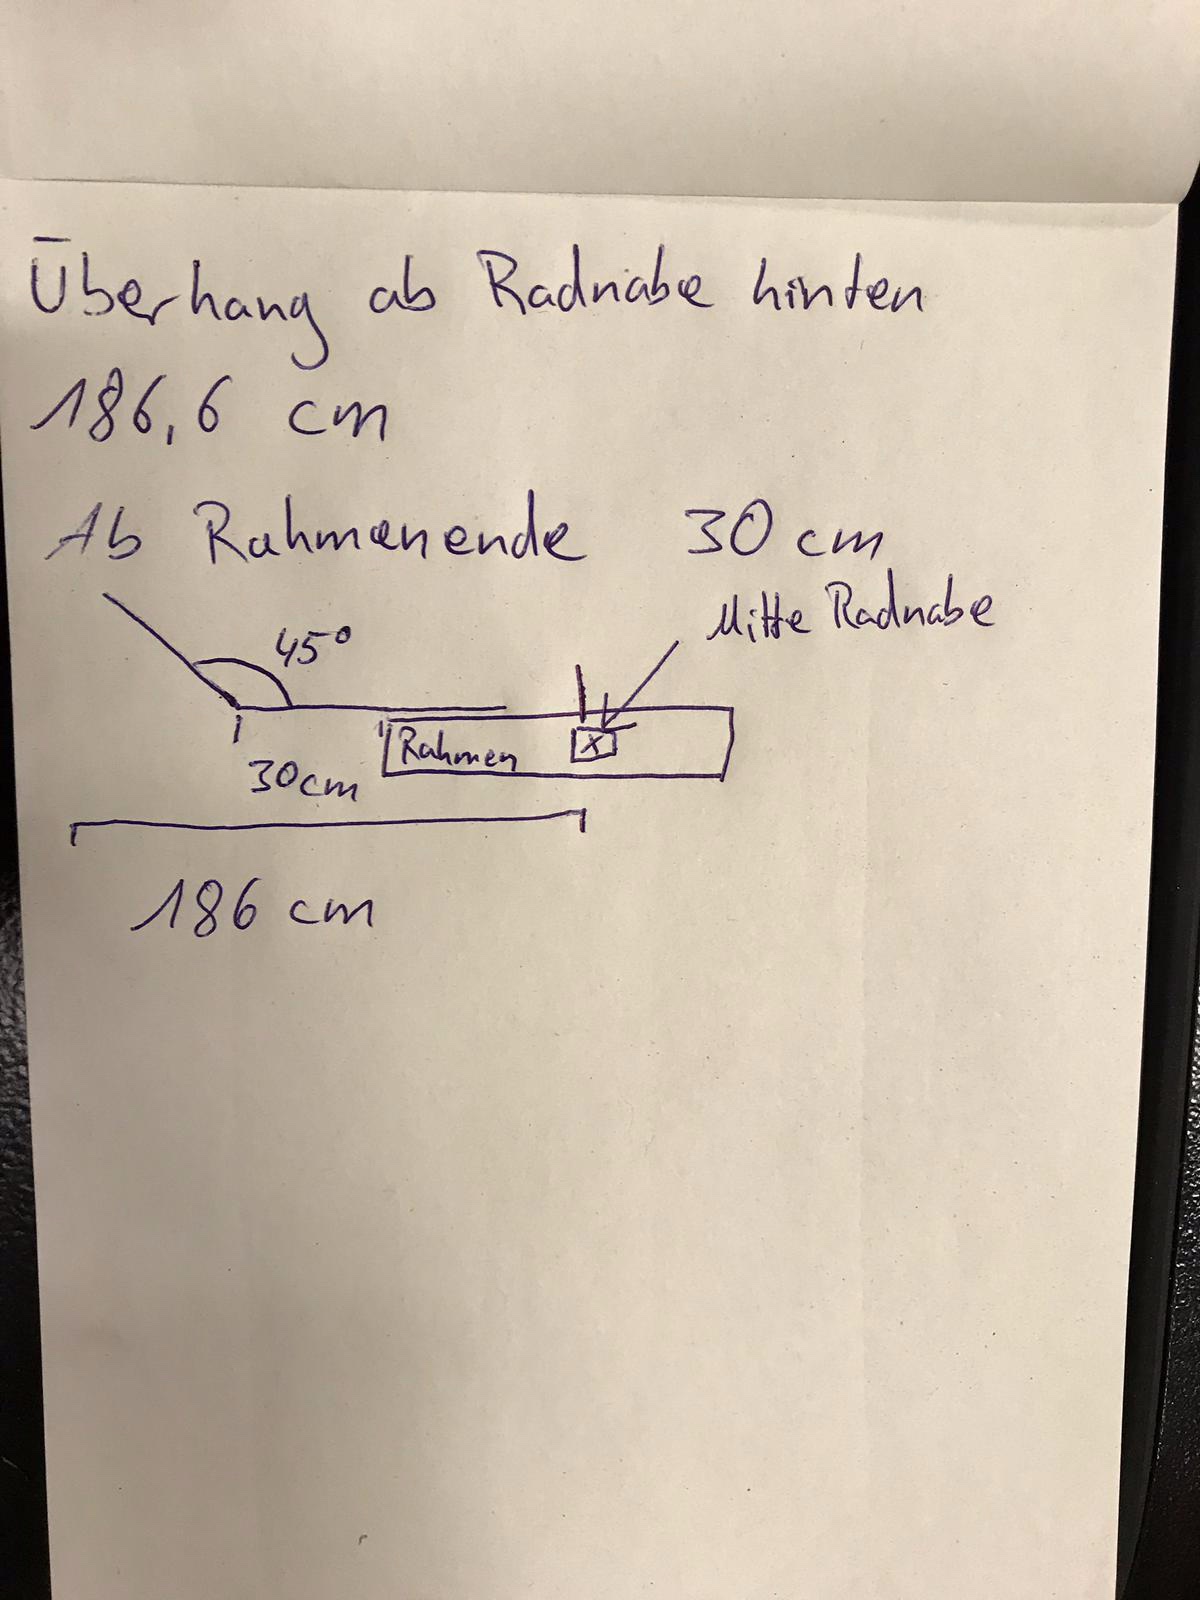 Überhang ab Radnabe hinten
186,6 cm
Ab Rahmenende 30 cm
Mitte Radnabe
45°
Rahmen
x
30cm
186 cm